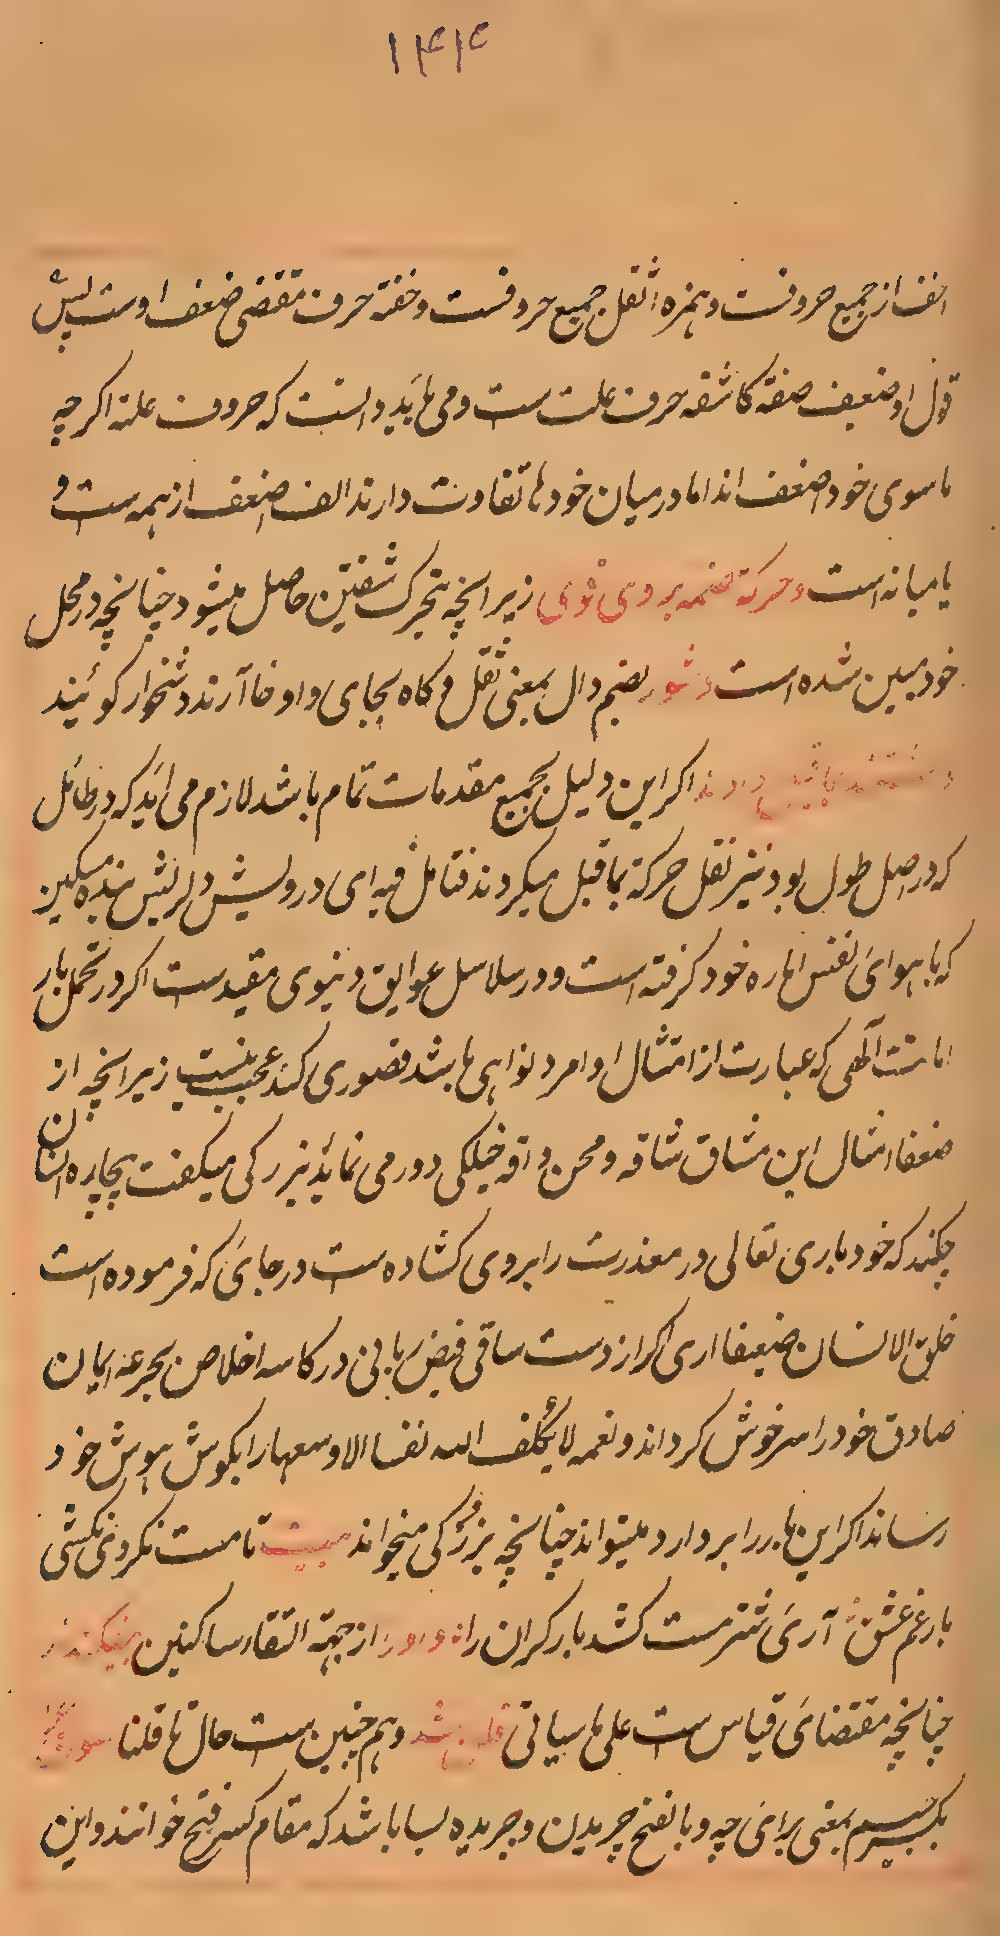 ۱۴۱۴
اخف از جمیع حروفست و همزه اثقل جمیع حروفست و خفته حرف مقتضی ضعف اوست پس
قول او ضعیف صفة کاشفه حرف علت ست و می باید دانست که حروف علة اکرچه
ماسوی خود اضعف اند اما در میان خودها تفاوت دارند الف اضعف از همه ست و
یا میانه است و حرکة ضمه بر وی قوی زیرا نچه بتحرک شفتین حاصل میشود چنانچه در محل
خود مبین شده است دشوار بضم دال بمعنی ثقل و کاه بجای واو خا آرند دشخوار کوئیند
اکر این دلیل بجمیع مقدمات تمام باشد لازم می اید که در طائل
که در اصل طول بود نیز نقل حرکة بما قبل میکردند فتامل فیه ای درویش دلریش بنده مسکین
که با هوای نفس اماره خود کرفته است و در سلاسل عوایق دنیوی مقیدست اکر در تحمل بار
امانت آلهی که عبارت از امتثال اوامر و نواهی باشد قصوری کند عجب نیست زیرا نچه از
ضعفا امثال این مشاق شاقه و محن خیلکی دور می نماید بزرکی میکفت بیچاره انسان
چکند که خود باری تعالی در معذرت را بروی کشاده ست در جای که فرموده است
خلق الانسان ضعیفا اری اکر از دست ساقی فیض ربانی در کاسه اخلاص بجرعه ایمان
صادق خود را سرخوش کرداند و نغمه لا یکلف الله نفسا الا وسعها را بکوش هوش خود
رساند اکر این بار را بردارد میتواند چنانچه بزرکی میخواند بیت تا مست نکردی نکشی
بار غم عشق آری شتر مست کشد بار کران را از جهة التقاء ساکنین بیفکندند
چنانچه مقتضای قیاس ست علی ما سیاتی و هم چنین ست حال ما قلنا
بکسر جیم بمعنی برای چه و با لفتح چریدن و جریده بسا باشد که مقام کسر فتح خوانند و این